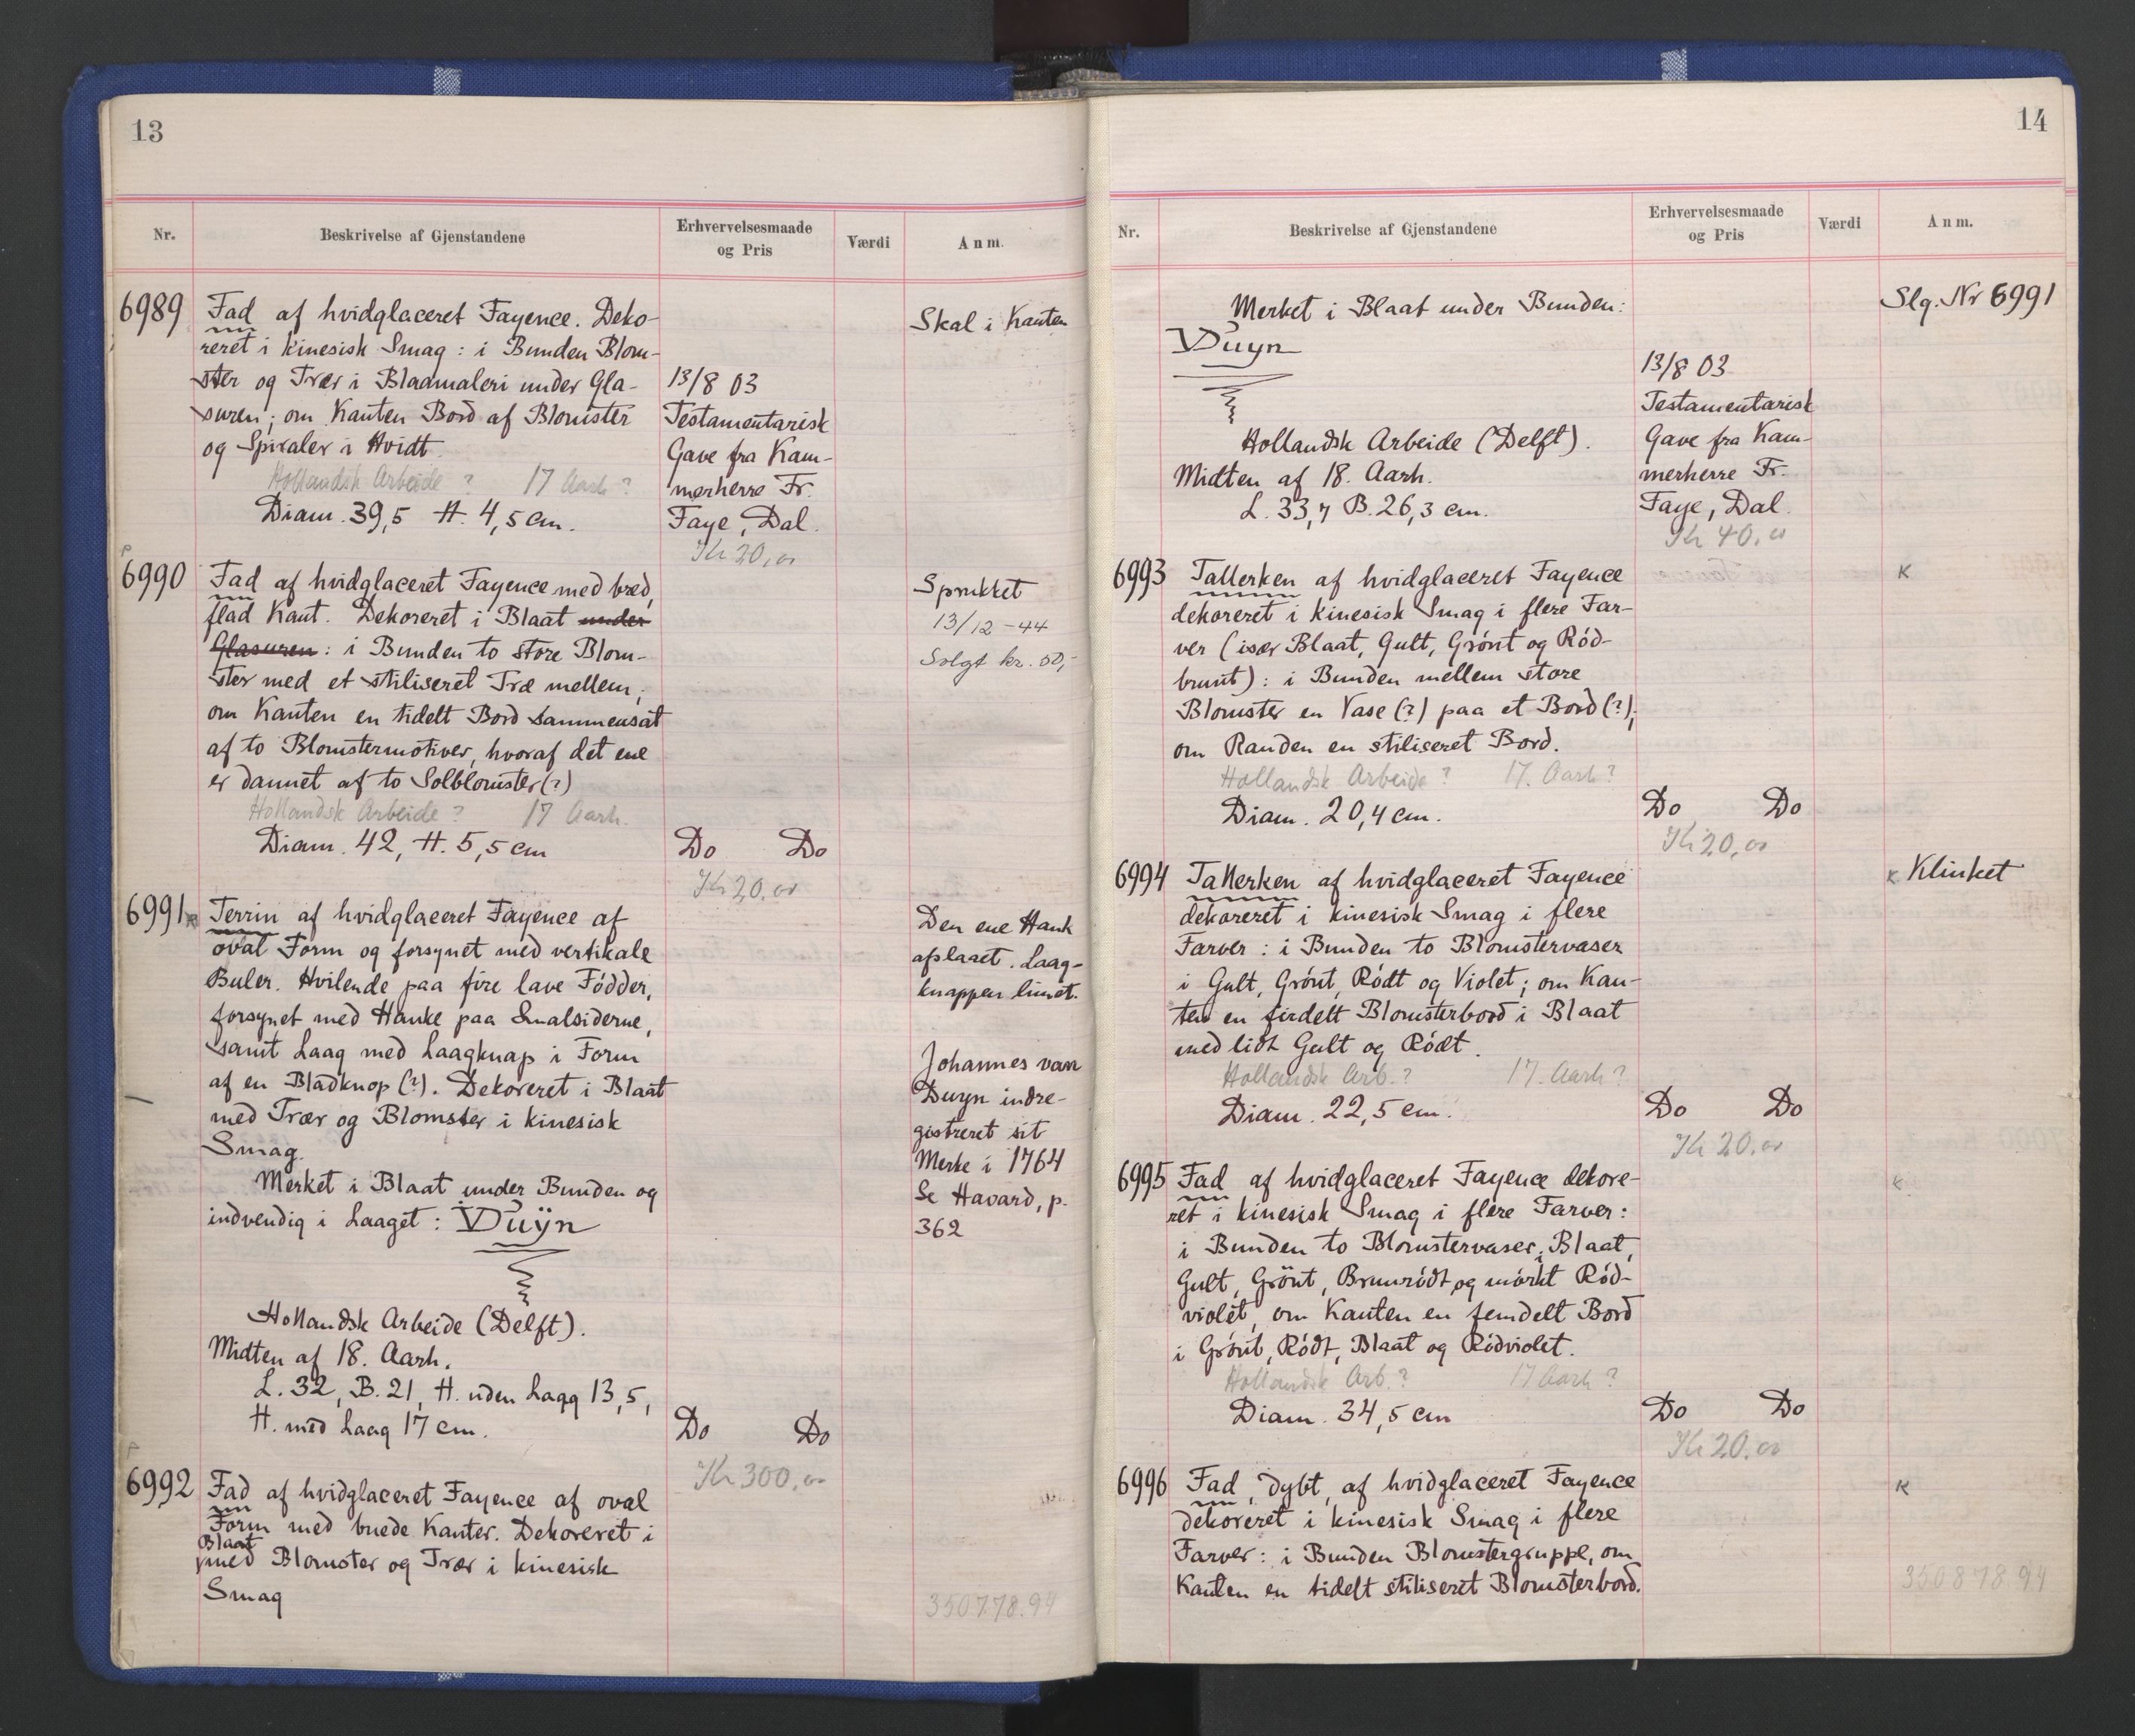 13
Nr.
Beskrivelse af Gjenstandene
Erhvervelsesmaade
og Pris
Værdi
Anm.
6989
Fad af hvidglaceret Fayence. Deko-
reret i kinesisk Smag : i Bunden Blom-
ster og Trær i Blaamaleri under Gla-
suren; om Kanten Bord af Blomster
og Spiraler i Hvidt.
Hollandsk Arbeide ? 17 Aarh ?
Diam. 39,5 H. 4,5 cm.
13/8 03
Testamentarisk
Gave fra Kam-
merherre Fr.
Faye, Dal.
Kr 20,00
Skal i Kanten
6990
Fad af hvidglaceret Fayence med bred,
flad Kant. Dekoreret i Blaat under
Glasuren : i Bunden to store Blom-
ster med et stiliseret Træ mellem;
om Kanten en tidelt Bord sammensat
af to Blomstermotiver, hvoraf det ene
er dannet af to Solblomster (?)
Hollandsk Arbeide ? 17 Aarh.
Diam. 42, H. 5,5 cm
Do Do
Kr 20,00
Sprukket
13/12-44
Solgt kr. 50,-
6991 K
Terrin af hvidglaceret Fayence af
oval Form og forsynet med vertikale
Buler. Hvilende paa fire lave Födder,
forsynet med Hanke paa Smalsiderne,
samt Laag med Laagknap i Form
af en Bladknop (?). Dekoreret i Blaat
med Trær og Blomster i kinesisk
Smag.
Merket i Blaat under Bunden og
indvendig i Laaget : VDuÿn
Hollandsk Arbeide (Delft).
Midten af 18. Aarh.
L. 32, B. 21, H. uden Lagg 13,5,
H. med Laag 17 cm.
Do Do
Kr 300,00
Den ene Hank
afslaaet. Laag-
knappen limet.
Johannes van
Duyn indre-
gistreret sit
Merke i 1764
Se Havard, p.
362
6992
Fad af hvidglaceret Fayence af oval
Form med buede Kanter. Dekoreret i
Blaat
med Blomster og Trær i kinesisk
Smag
350778.94
14
Nr.
Beskrivelse af Gjenstandene
Erhvervelsesmaade
og Pris
Værdi
Anm.
Merket i Blaat under Bunden:
VDuyn
Hollandsk Arbeide (Delft).
Midten af 18. Aarh.
L. 33,7 B. 26,3 cm.
13/8 03
Testamentarisk
Gave fra Kam-
merherre Fr.
Faye, Dal.
Kr 40,00
Slg. Nr 6991
6993
Tallerken af hvidglaceret Fayence
dekoreret i kinesisk Smag i flere Far-
ver (især Blaat, Gult, Grönt og Röd-
brunt) : i Bunden mellem store
Blomster en Vase (?) paa et Bord (?);
om Randen en stiliseret Bord.
Hollandsk Arbeide ? 17. Aarh ?
Diam. 20,4 cm.
Do Do
Kr 20,00
K
6994
Tallerken af hvidglaceret Fayence
dekoreret i kinesisk Smag i flere
Farver : i Bunden to Blomstervaser
i Gult, Grönt, Rödt og Violet; om Kan-
ten en firdelt Blomsterbord i Blaat
med lidt Gult og Rödt.
Hollandsk Arb. ? 17. Aarh ?
Diam. 22,5 cm.
Do Do
Kr 20,00
K Klinket
6995
Fad af hvidglaceret Fayence dekore-
ret i kinesisk Smag i flere Farver :
i Bunden to Blomstervaser i Blaat,
Gult, Grönt, Brunrödt og mörkt Röd-
violet, om Kanten en femdelt Bord
i Grönt, Rödt, Blaat og Rödviolet.
Hollandsk Arb. ? 17 Aarh ?
Diam. 34,5 cm
Do Do
Kr 20,00
K
6996
Fad, dybt, af hvidglaceret Fayence
dekoreret i kinesisk Smag i flere
Farver : i Bunden Blomstergruppe, om
Kanten en tidelt stiliseret Blomsterbord.
K
350878.94